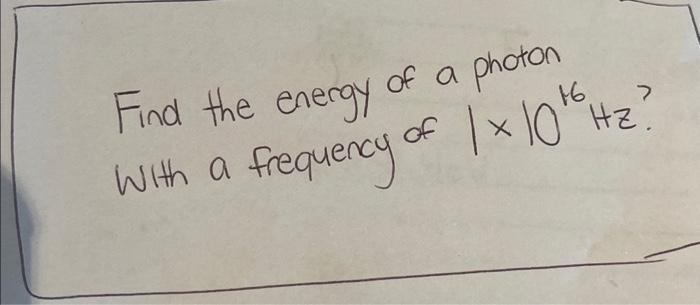 Find the energy of a photon
With a frequency of 1 × 10¹⁶ Hz?